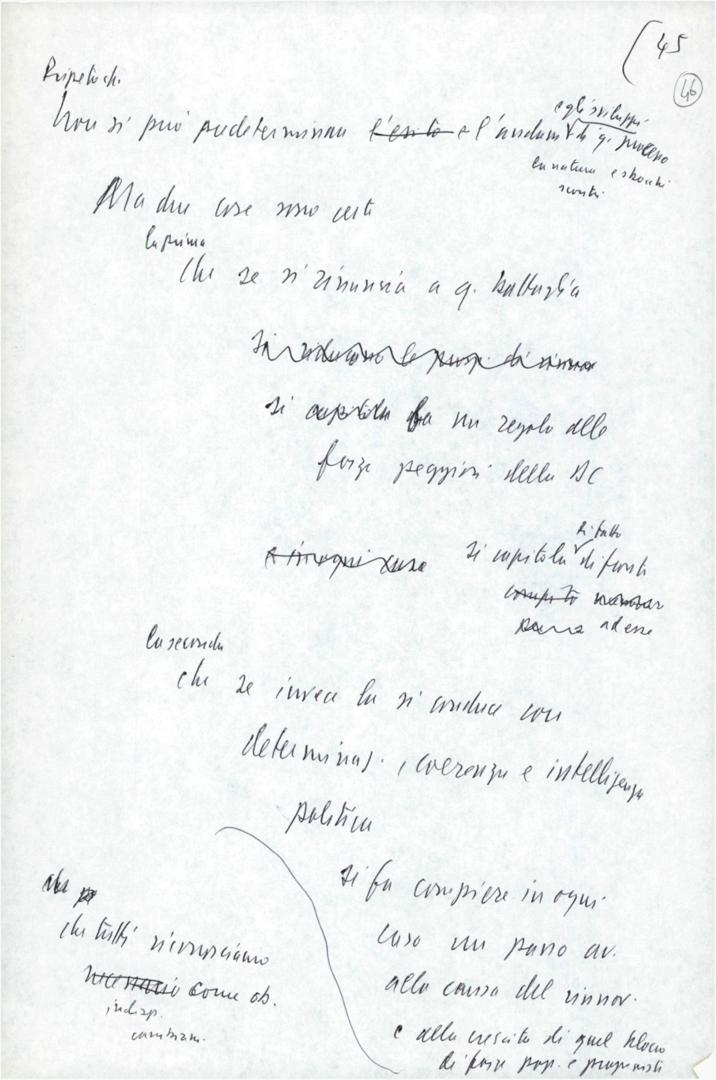 45
46
Ripeto che
Non si può predeterminare l'esito e l'andam. di q. processo
e gli sviluppi
la natura e sbocchi
scontri
Ma due cose sono certe
la prima
che se si rinuncia a q. battaglia
si riducono le di rinnov
si capitola fa un regalo alle
forze peggiori della DC
e in ogni caso
si capitola di fronte
di fatto
ad esse
la seconda
che se invece la si conduce con
determinaz., coerenza e intelligenza
politica
si fa compiere in ogni
caso un passo av.
alla causa del rinnov.
e alla crescita di quel blocco
di forze pop. e progressiste
che
che tutti riconosciamo
necessario come ob.
indisp.
cambiam.